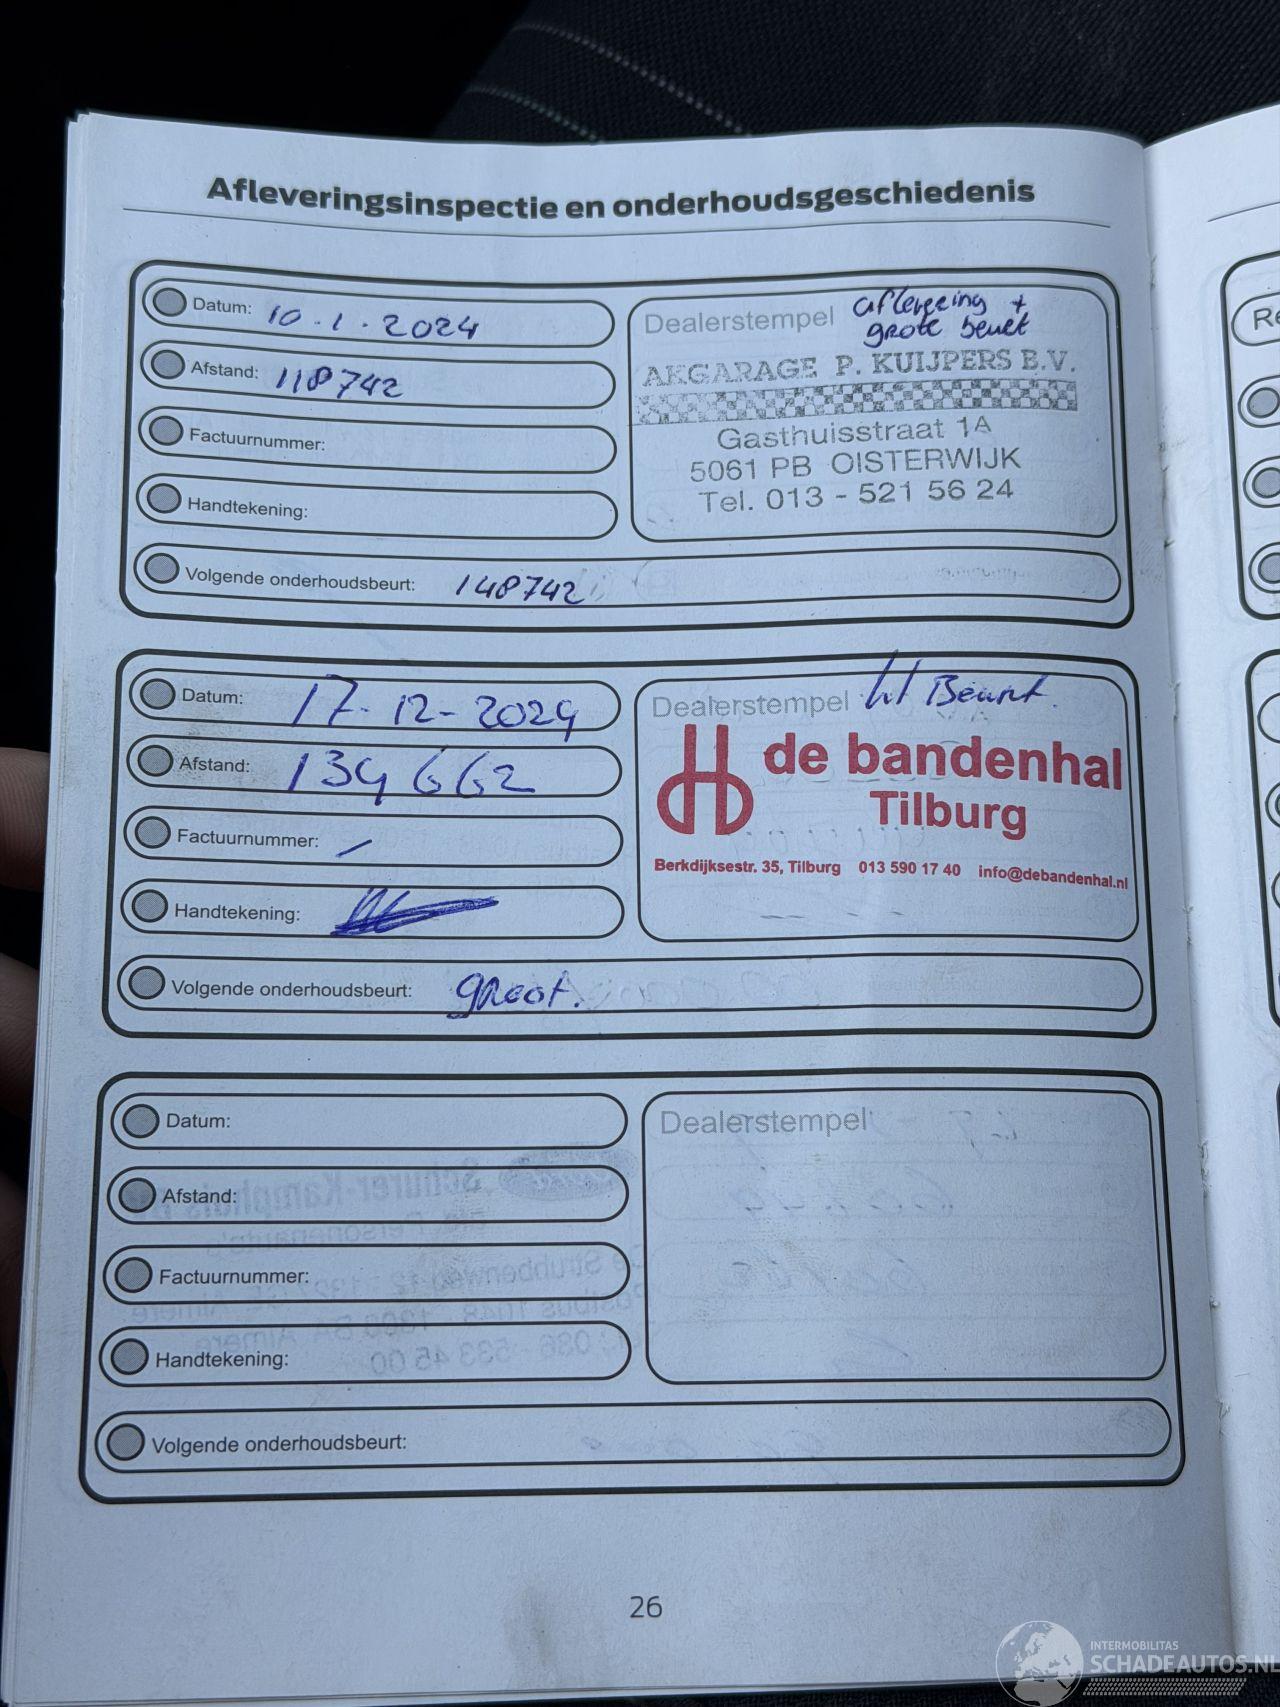 Afleveringsinspectie en onderhoudsgeschiedenis
Datum: 10-1-2024
Afstand: 118742
Factuurnummer:
Handtekening:
Volgende onderhoudsbeurt: 148742
Dealerstempel aflevering +
grote beurt
AKGARAGE P. KUIJPERS B.V.
Gasthuisstraat 1A
5061 PB OISTERWIJK
Tel. 013 - 521 56 24
Datum: 17-12-2024
Afstand: 134662
Factuurnummer: /
Handtekening:
Volgende onderhoudsbeurt: groot.
Dealerstempel kl Beurt.
de bandenhal
Tilburg
Berkdijksestr. 35, Tilburg 013 590 17 40 info@debandenhal.nl
Datum:
Afstand:
Factuurnummer:
Handtekening:
Volgende onderhoudsbeurt:
Dealerstempel
26
Re
INTERMOBILITAS
SCHADEAUTOS.NL